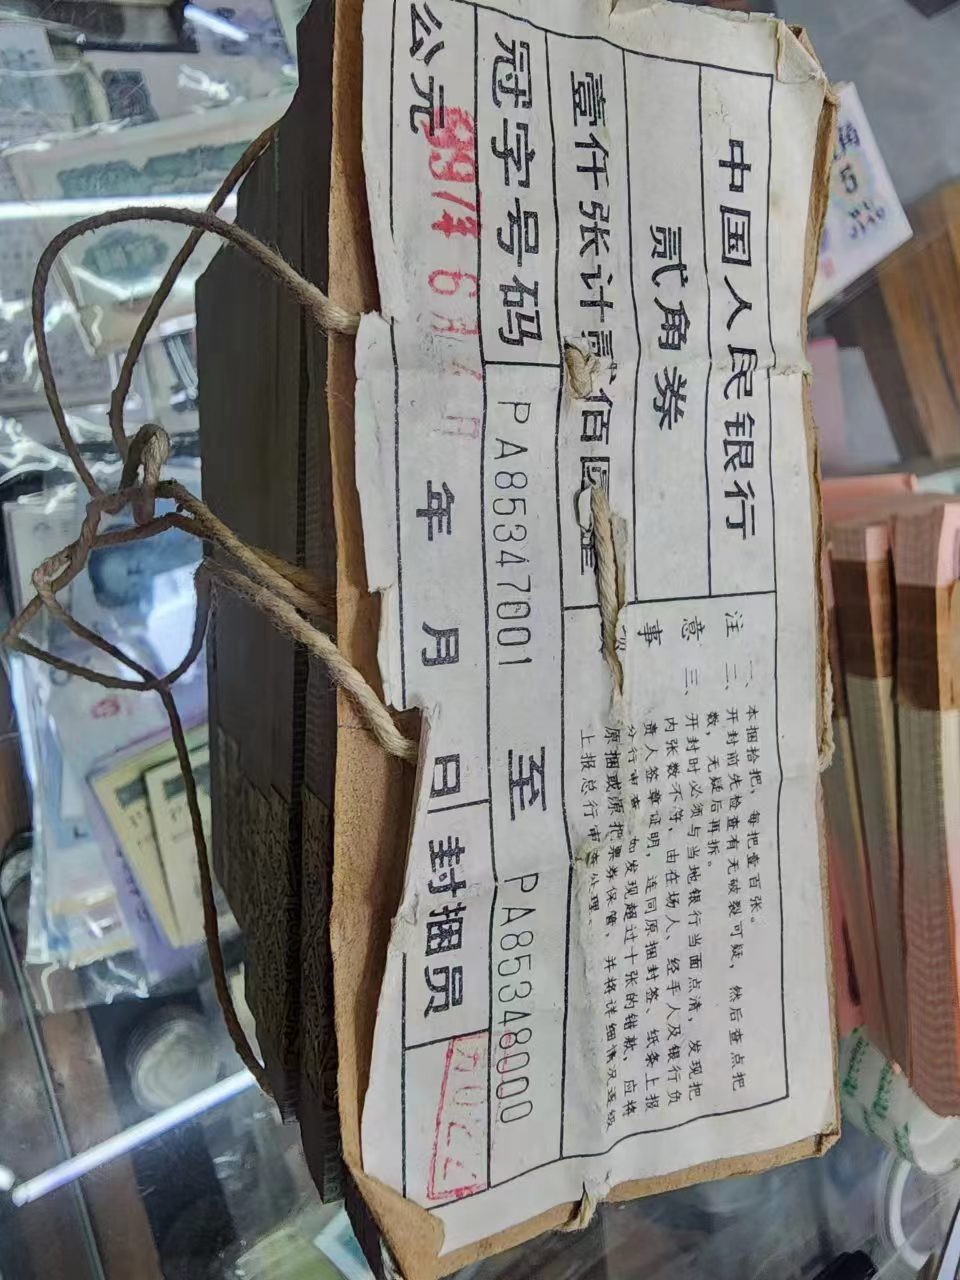 中国人民银行
贰角券
壹仟张计贰佰圆整
冠字号码 PA85347001 至 PA85348000
公元 年 月 日 封捆员
注意事项
一、本捆拾把，每把壹百张。
二、开封前先检查有无破裂可疑，然后查点把
数，无疑后再拆。
三、开封时必须与当地银行当面点清，发现把
内张数不符，由在场人、经手人及银行负
责人签章证明，连同原捆封签、纸条上报
分行审查，如发现超过十张的错款，应将
原捆或原把票券保管，并将详细情况逐级
上报总行审查处理。
5